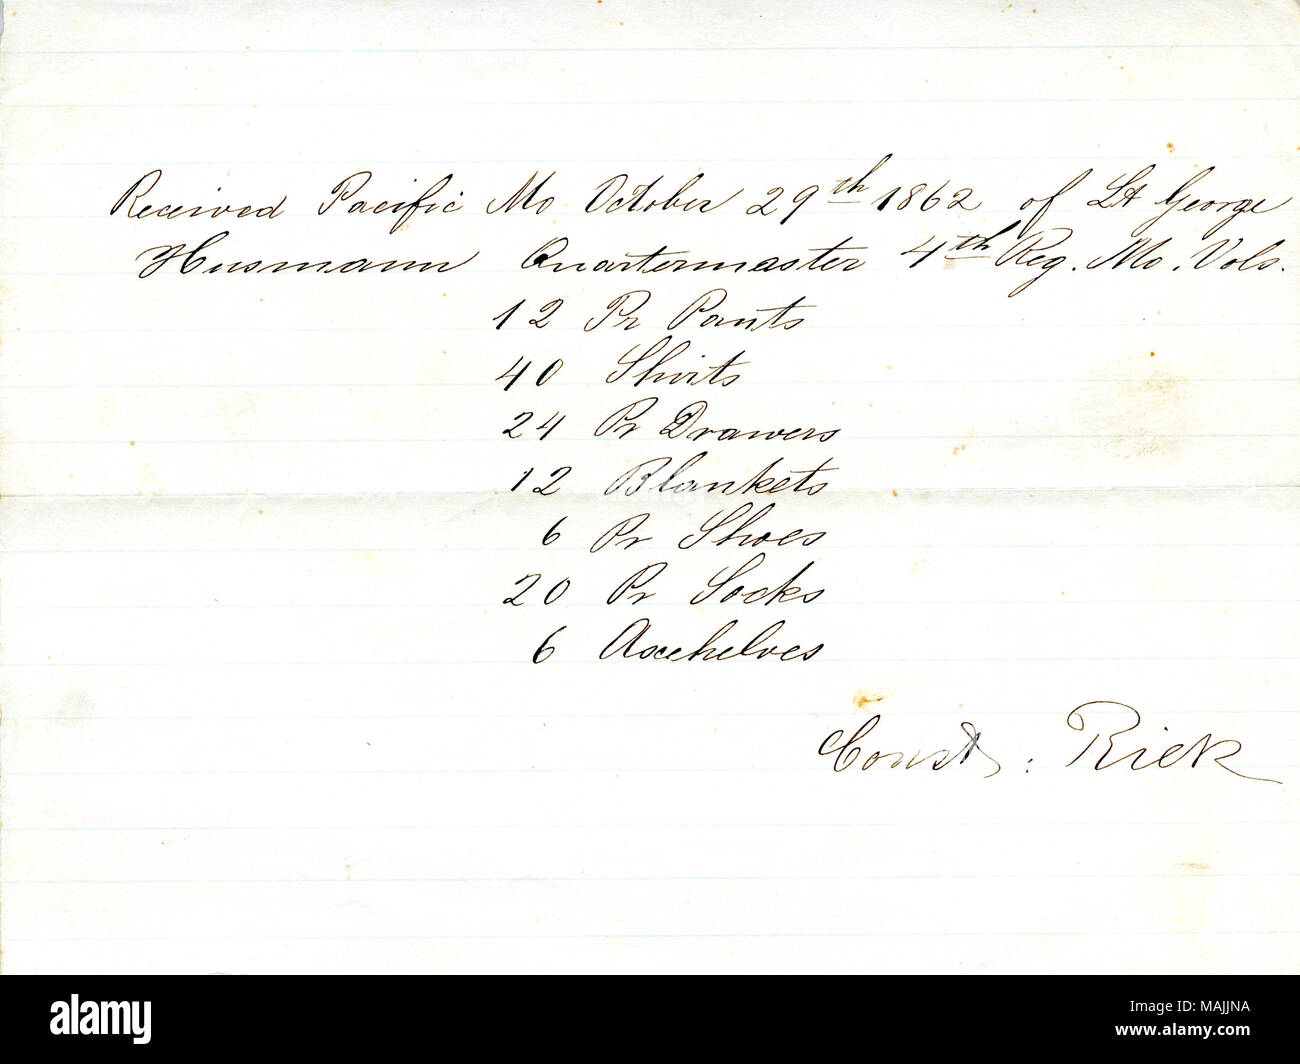 Received Pacific Mo October 29th 1862 of Lt George
Husmann Quartermaster 4th Reg. Mo. Vols.
12 Pr Pants
40 Shirts
24 Pr Drawers
12 Blankets
6 Pr Shoes
20 Pr Socks
6 Axehelves
Const. Rick
alamy
Image ID: MAJJNA
www.alamy.com